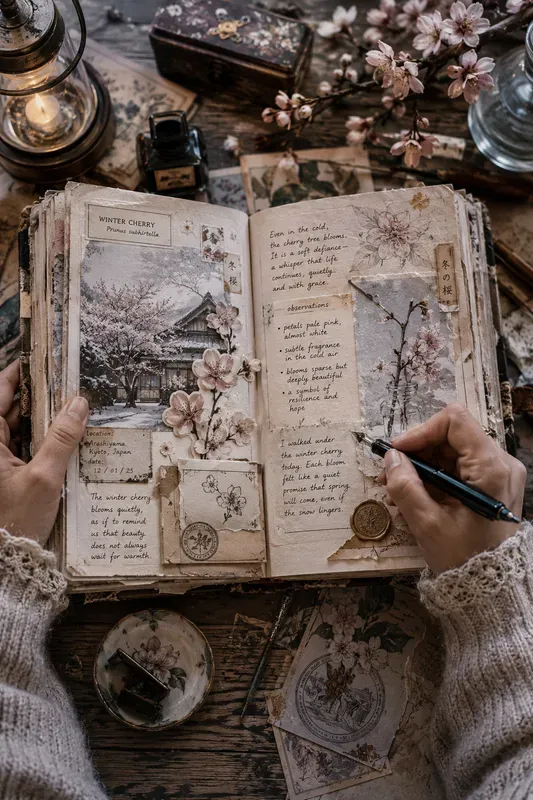 WINTER CHERRY
Prunus subhirtella
冬桜
Location:
Arashiyama
Kyoto, Japan
date:
12 / 01 / 25
The winter cherry
blooms quietly,
as if to remind
us that beauty
does not always
wait for warmth.
Even in the cold,
the cherry tree blooms.
It is a soft defiance—
a whisper that life
continues, quietly,
and with grace.
冬の桜
observations
• petals pale pink,
almost white
• subtle fragrance
in the cold air
• blooms sparse but
deeply beautiful
• a symbol of
resilience and
hope
I walked under
the winter cherry
today. Each bloom
felt like a quiet
promise that spring
will come, even if
the snow lingers.